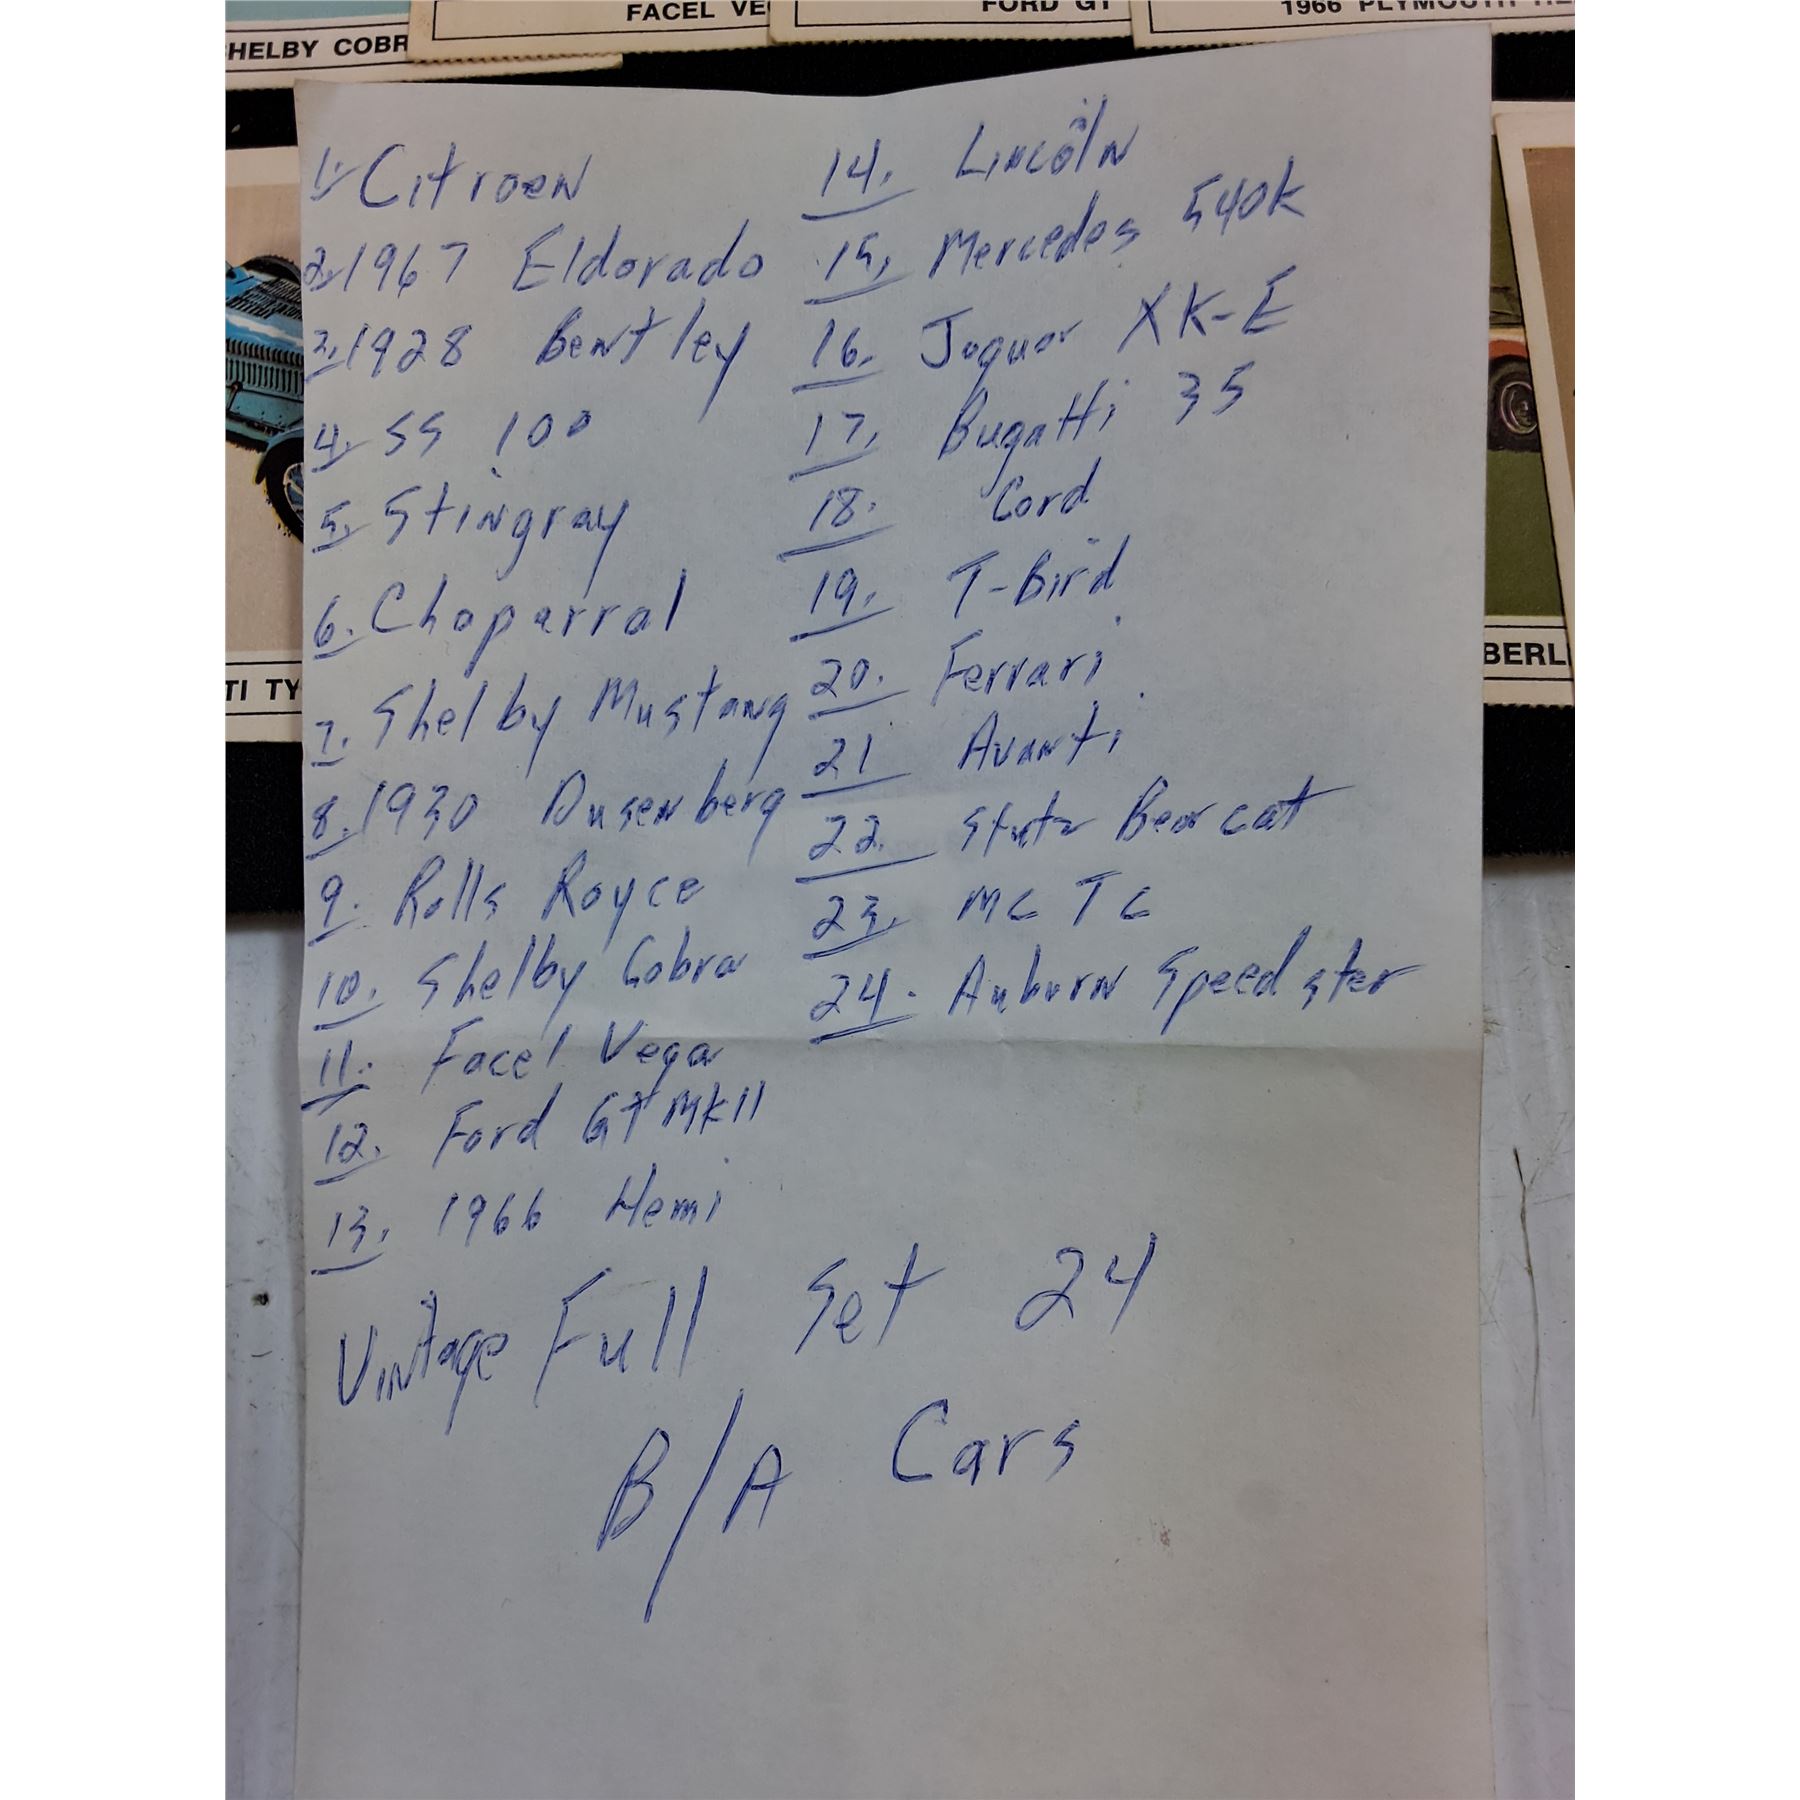 HELBY COBR
FACEL VE
FORD GT
1966 PLYMOUTH HE
1. Citroen
2. 1967 Eldorado
3. 1928 Bentley
4. SS 100
5. Stingray
6. Chaparral
7. Shelby Mustang
8. 1930 Dusenberg
9. Rolls Royce
10. Shelby Cobra
11. Facel Vega
12. Ford GT MkII
13. 1966 Hemi
14. Lincoln
15. Mercedes 540k
16. Jaguar XK-E
17. Bugatti 35
18. Cord
19. T-Bird
20. Ferrari
21 Avanti
22. Stutz Bearcat
23. MC TC
24. Auburn Speedster
TI TY
BERL
Vintage Full Set 24
B/A Cars